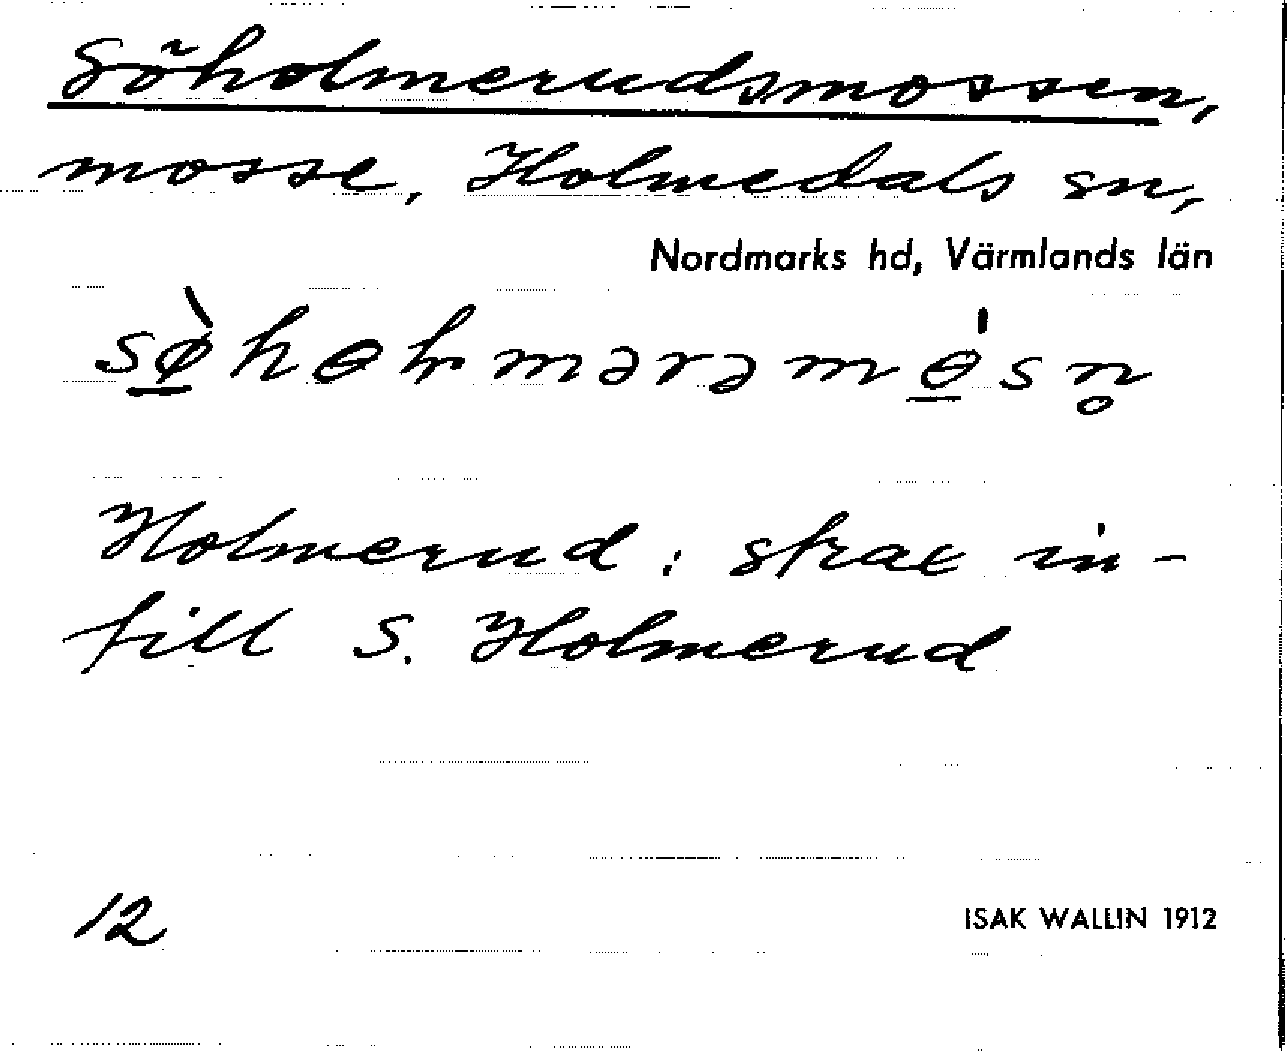 Söholmerudsmossen,
mosse, Holmedals sn,
Nordmarks hd, Värmlands län
Holmerud; strax in-
till S. Holmerud
12
ISAK WALLIN 1912